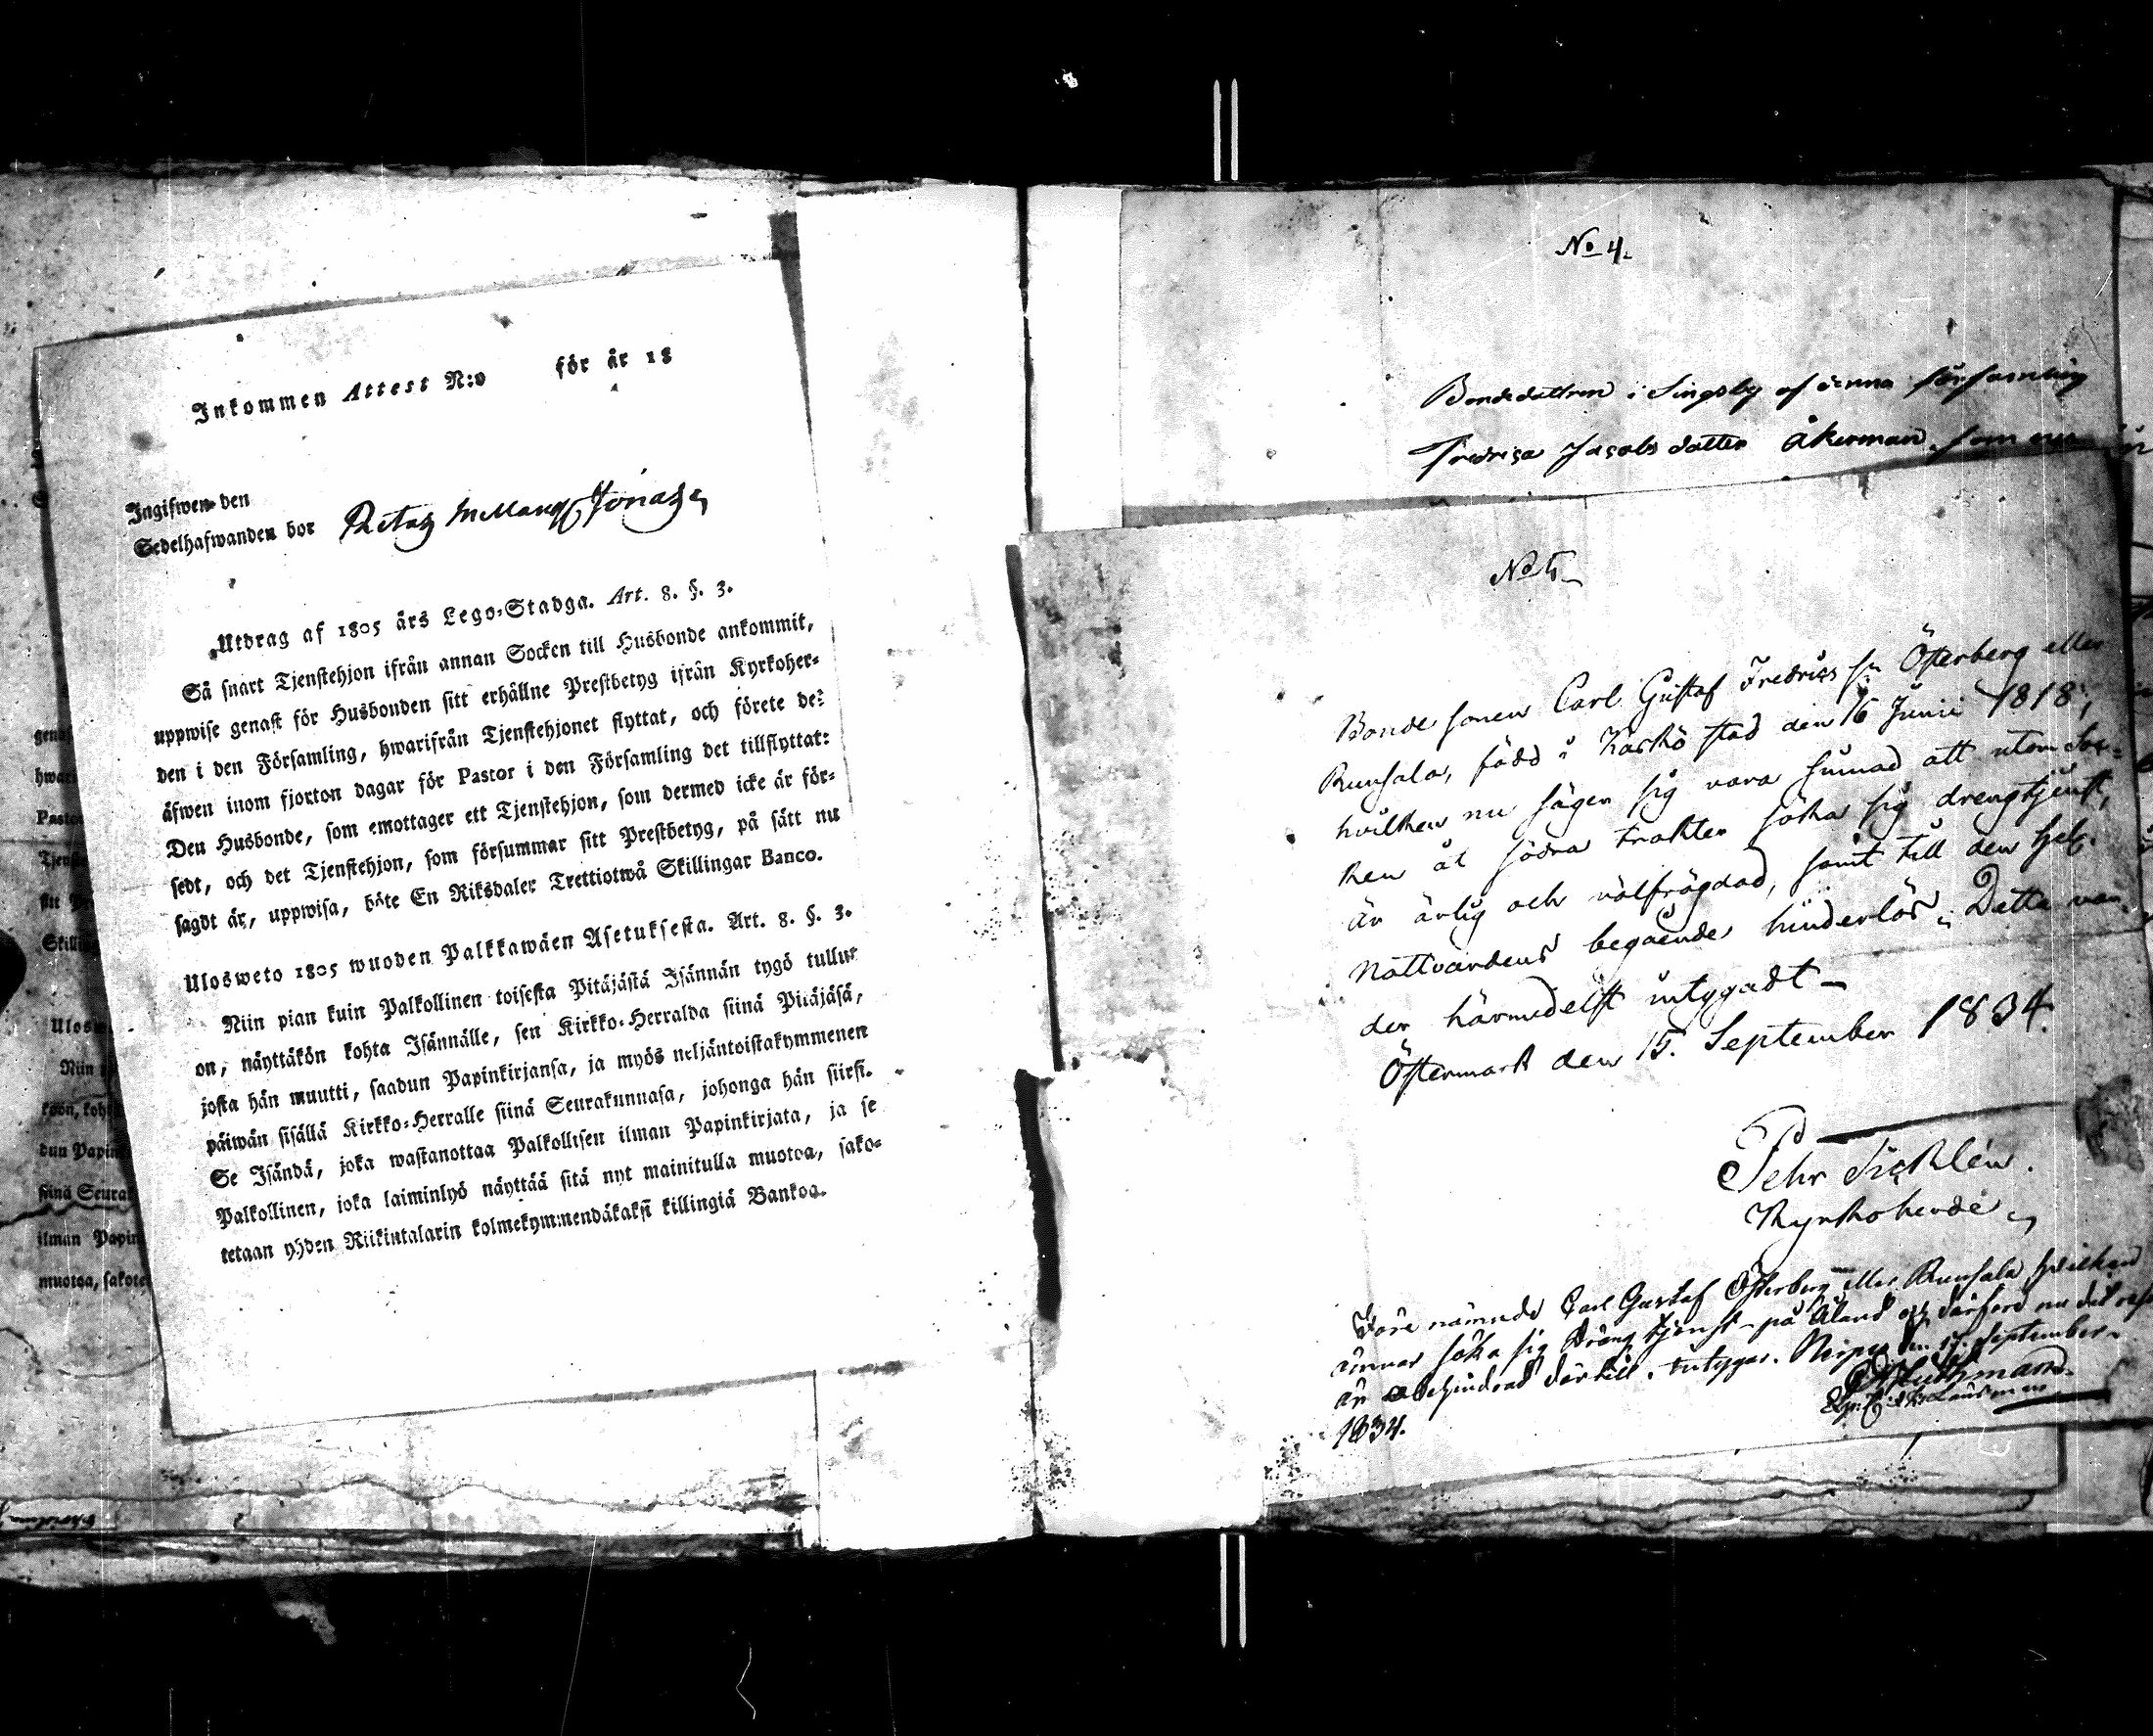 Inkommen Attest N:o för år 18
Ingifwen den
Sedelhafwanden bor
Utdrag af 1805 års Lego-Stadga. Art. 8. §. 3.
Så snart Tjenstehjon ifrån annan Socken till Husbonde ankommit,
uppwise genast för Husbonden sitt erhållne Prestbetyg ifrån Kyrkoher-
den i den Församling, hwarifrån Tjenstehjonet flyttat, och förete de-
äfwen inom fjorton dagar för Pastor i den Församling det tillflyttat:
Den Husbonde, som emottager ett Tjenstehjon, som dermed icke är för-
sedt, och det Tjenstehjon, som försummar sitt Prestbetyg, på sätt nu
sagdt är, uppwisa, böte En Riksdaler Trettiotwå Skillingar Banco.
Ulosweto 1805 wuoden Palkkawäen Asetuksesta. Art. 8. §. 3.
Niin pian kuin Palkollinen toisesta Pitäjästä Isännän tygö tullut
on, näyttäkön kohta Isännälle, sen Kirkko-Herralda siinä Pitäjäsä,
josta hän muutti, saadun Papinkirjansa, ja myös neljäntoistakymmenen
päiwän sisällä Kirkko-Herralle siinä Seurakunnasa, johonga hän siirsi.
Se Isändä, joka wastanottaa Palkollisen ilman Papinkirjata, ja se
Palkollinen, joka laiminlyö näyttää sitä nyt mainitulla muotoa, sako-
tetaan yhden Riikintalarin kolmekymmendäkaksi killingiä Bankoa.
No 4.
Bondedottren i Singsby af denna församling
Fredrica Jacobs dotter Åkerman, som nu
No 5
Bonde sonen Carl Gustaf Fredrics sn Österberg eller
Runsala, född i Kaskö stad den 16 Junii 1818,
hvilken nu säger sig vara sinnad att utom Soc-
ken åt södra trakten söka sig drengtjenst,
är ärlig och välfrägdad, samt till den hel.
nattvardens begående hinderlös. Detta var-
der härmedelst intygadt
Östermark den 15. September 1834.
Pehr Sicklén.
Kyrkoherde
Före nämnde Carl Gustaf Österberg eller Runsala hvilken
ämnar söka sig dräng tjenst på Åland och därföre nu dit
är obehindrad därtill, intygar. Närpes den 17. September
1834.